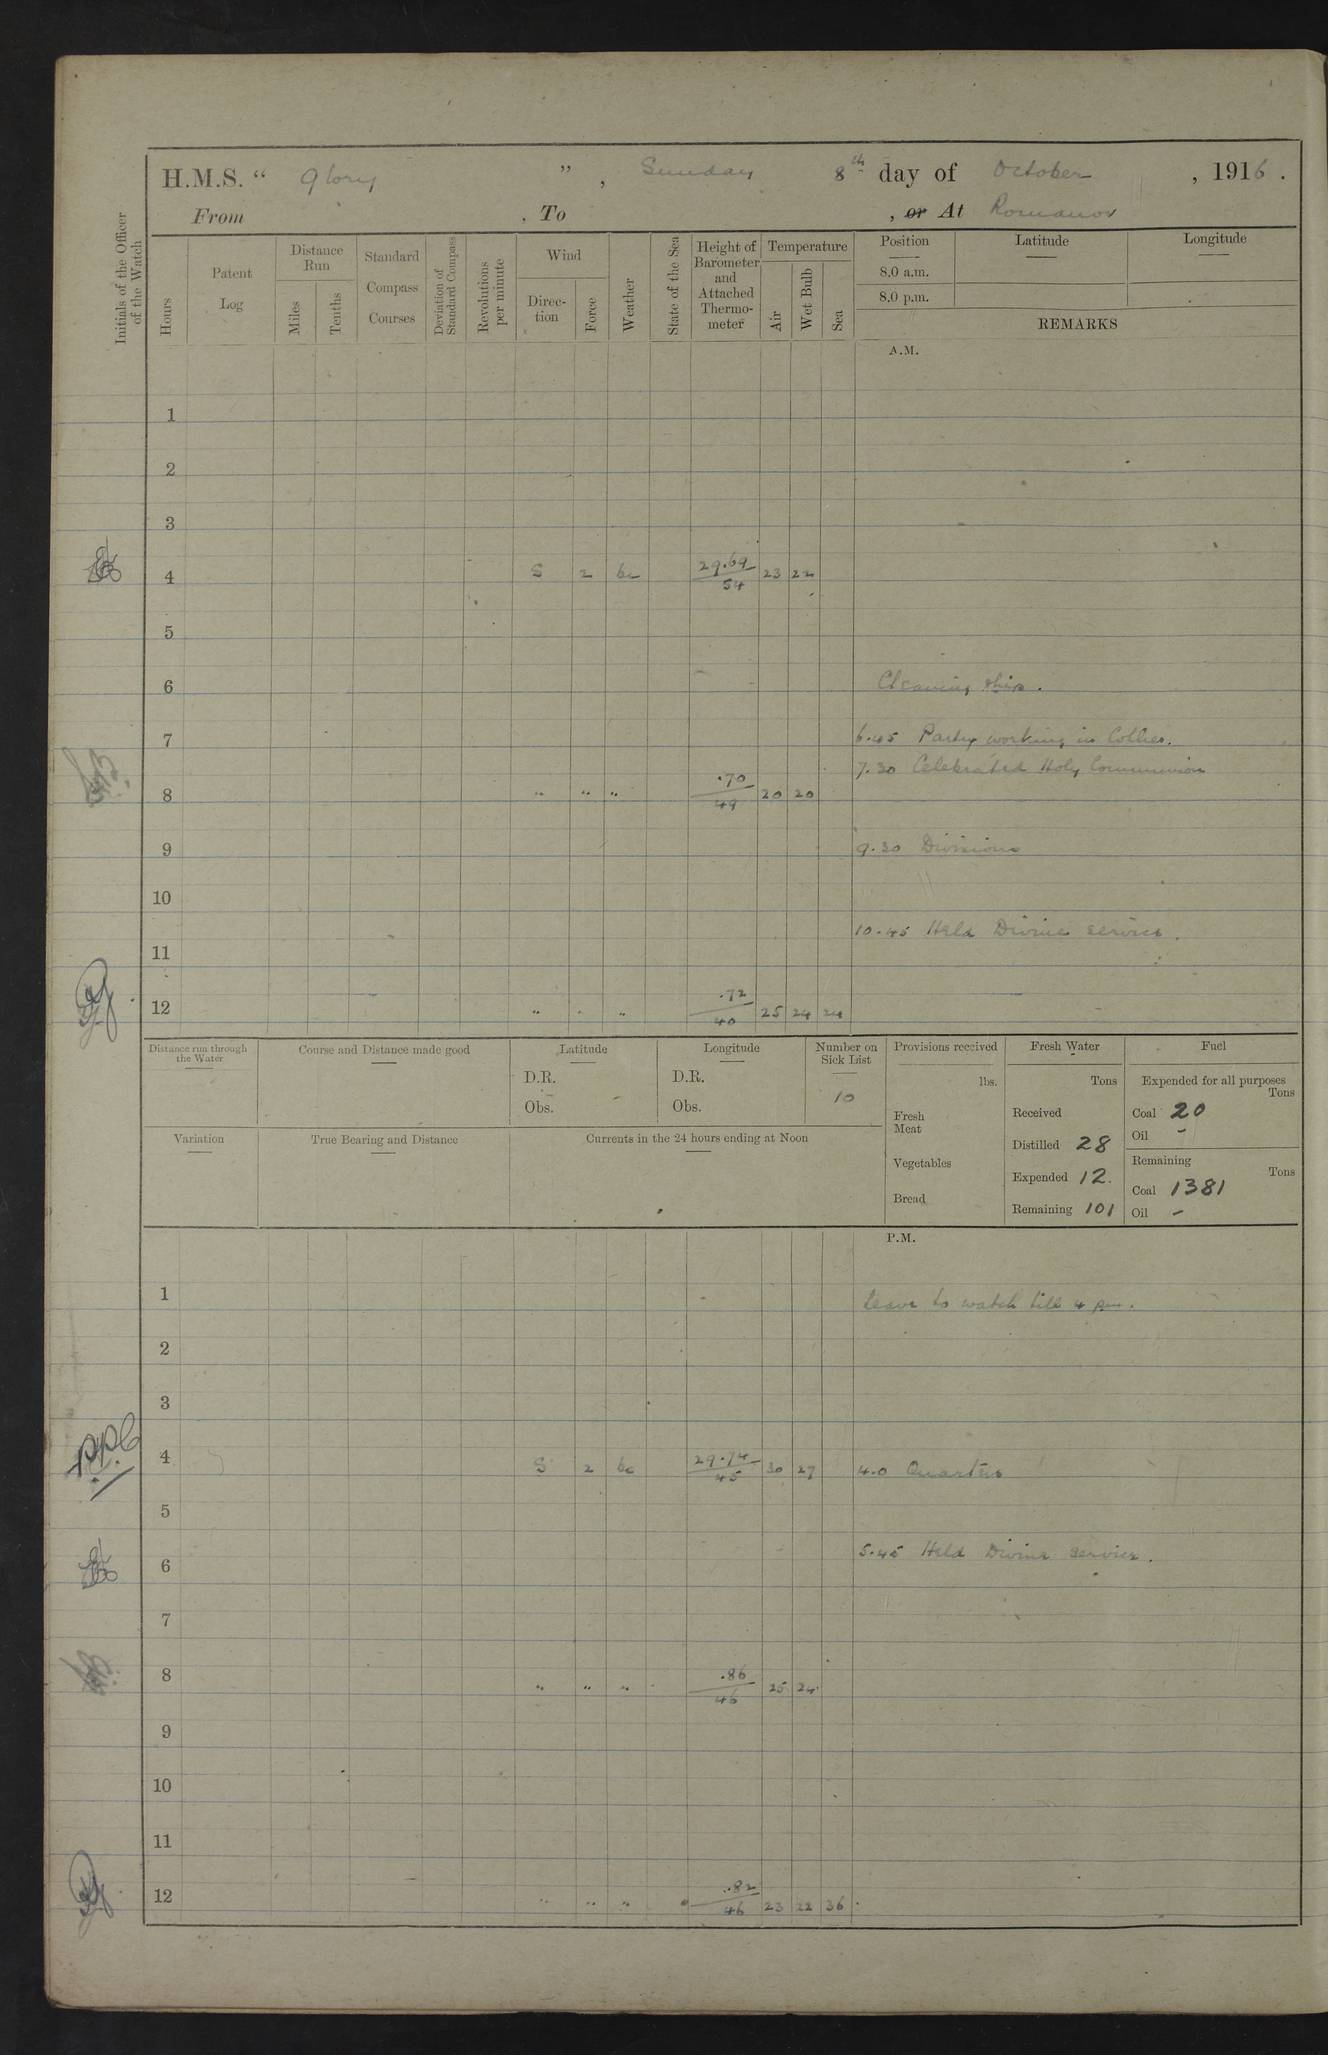 H.M.S. “ Glory ” , Sunday 8th day of October , 1916 .
From , To , or At Romanov
Initials of the Officer of the Watch
Hours
Patent Log
Distance Run
Miles
Tenths
Standard Compass Courses
Deviation of Standard Compass
Revolutions per minute
Wind
Direc-tion
Force
Weather
State of the Sea
Height of Barometer and Attached Thermo-meter
Temperature
Air
Wet Bulb
Sea
Position Latitude Longitude
8.0 a.m.
8.0 p.m.
REMARKS
A.M.
1
2
3
4 S 2 bc 29.69 54 23 22
5
6 Cleaning ship.
7 6.45 Party working in Collier.
7.30 Celebrated Holy Communion
8 " " " .70 49 20 20
9 9.30 Divisions
10
11 10.45 Held Divine service.
12 " " " .72 40 25 24 24
Distance run through the Water
Course and Distance made good
Latitude
D.R.
Obs.
Longitude
D.R.
Obs.
Number on Sick List
10
Provisions received
lbs.
Fresh Meat
Vegetables
Bread
Fresh Water
Tons
Received
Distilled 28
Expended 12.
Remaining 101
Fuel
Expended for all purposes
Tons
Coal 20
Oil -
Remaining
Tons
Coal 1381
Oil -
Variation
True Bearing and Distance
Currents in the 24 hours ending at Noon
P.M.
1 Leave to watch till 4 pm.
2
3
4 S 2 bc 29.74 45 30 27 4.0 Quarters
5
6 5.45 Held Divine service.
7
8 " " " .86 46 25 24
9
10
11
12 " " " .82 46 23 22 36